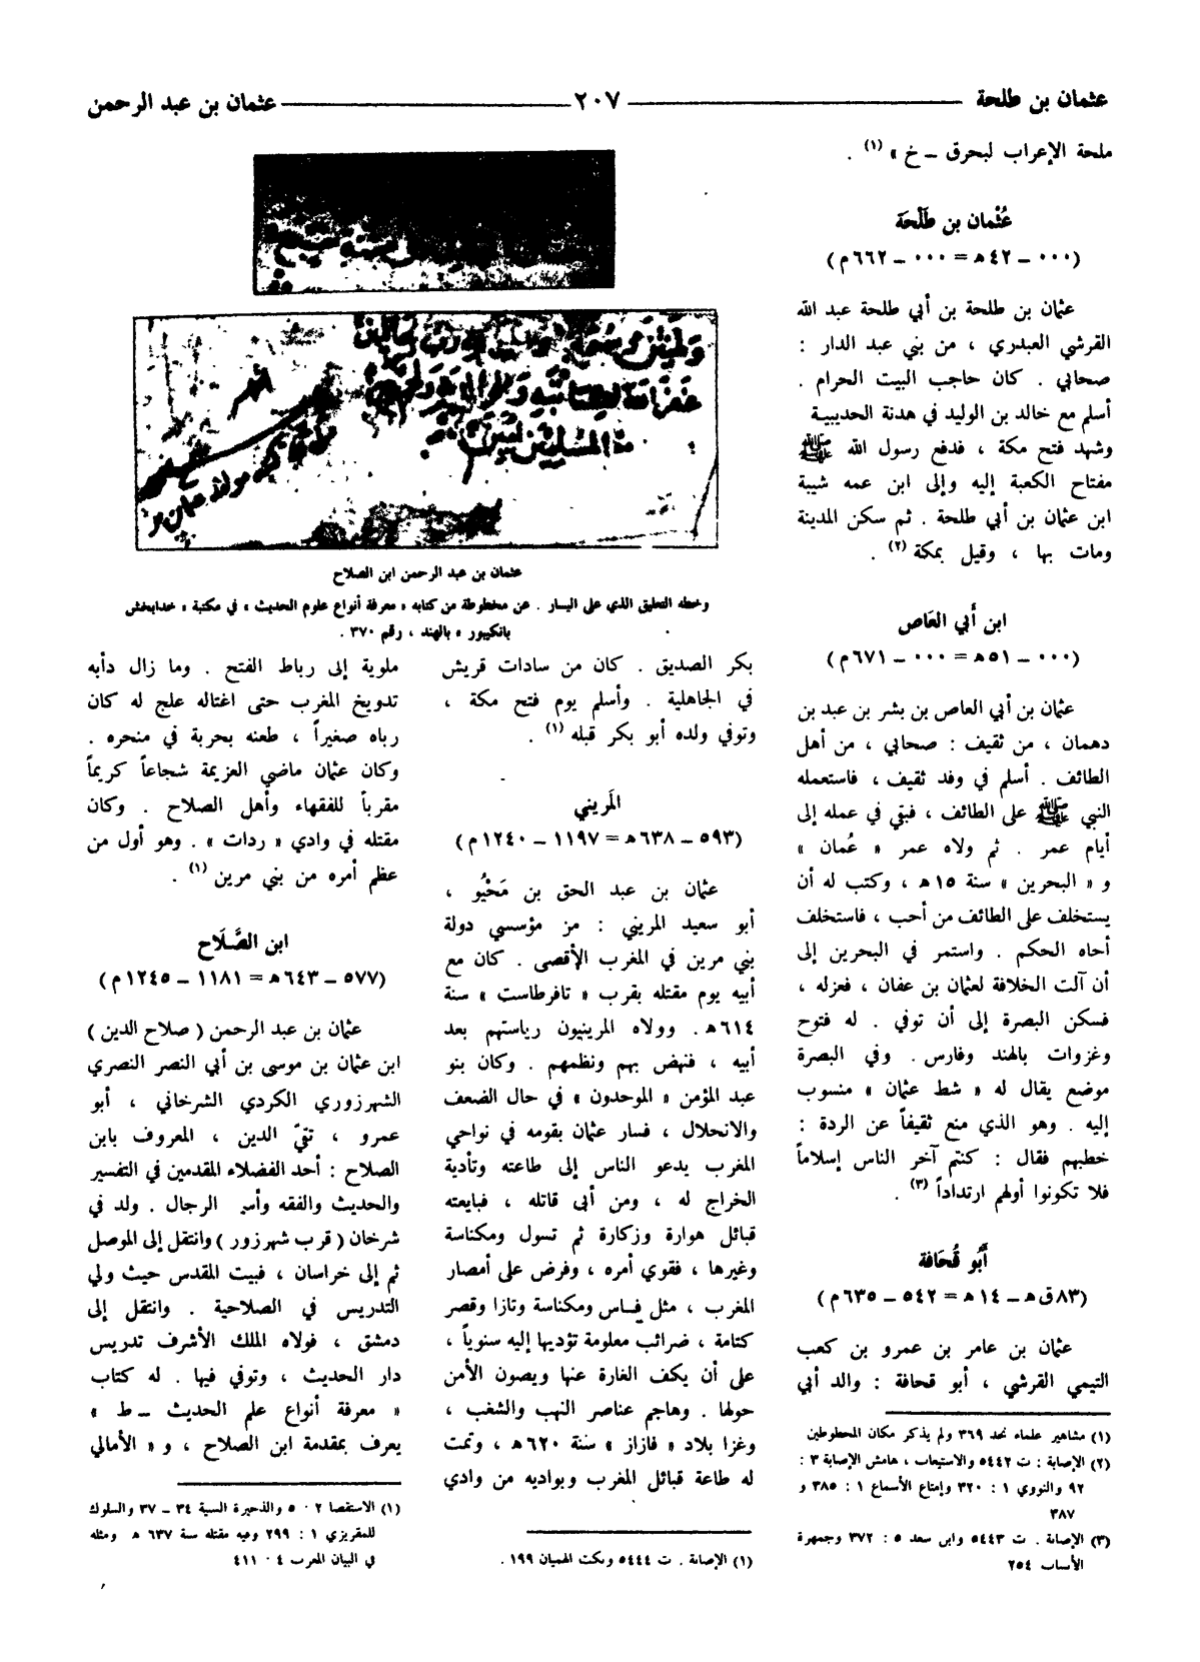 عثمان بن طلحة
٢٠٧
عثمان بن عبد الرحمن
ملحة الإعراب لبحرق ــ خ » (١) .
عُثْمان بن طَلْحَة
(٠٠٠ ــ ٤٢ هـ = ٠٠٠ ــ ٦٦٢ م)
عثمان بن طلحة بن أبي طلحة عبد الله
القرشي العبدري ، من بني عبد الدار :
صحابي . كان حاجب البيت الحرام .
أسلم مع خالد بن الوليد في هدنة الحديبية
وشهد فتح مكة ، فدفع رسول الله ﷺ
مفتاح الكعبة إليه وإلى ابن عمه شيبة
ابن عثمان بن أبي طلحة . ثم سكن المدينة
ومات بها ، وقيل بمكة (٢) .
ابن أَبي العَاص
(٠٠٠ ــ ٥١ هـ = ٠٠٠ ــ ٦٧١ م)
عثمان بن أبي العاص بن بشر بن عبد بن
دهمان ، من ثقيف : صحابي ، من أهل
الطائف . أسلم في وفد ثقيف ، فاستعمله
النبي ﷺ على الطائف ، فبقي في عمله إلى
أيام عمر . ثم ولاه عمر « عُمان »
و « البحرين » سنة ١٥ هـ ، وكتب له أن
يستخلف على الطائف من أحب ، فاستخلف
أخاه الحكم . واستمر في البحرين إلى
أن آلت الخلافة لعثمان بن عفان ، فعزله ،
فسكن البصرة إلى أن توفي . له فتوح
وغزوات بالهند وفارس . وفي البصرة
موضع يقال له « شط عثمان » منسوب
إليه . وهو الذي منع ثقيفاً عن الردة :
خطبهم فقال : كنتم آخر الناس إسلاماً
فلا تكونوا أولهم ارتداداً (٣) .
أَبُو قُحَافة
(٨٣ ق هـ ــ ١٤ هـ = ٥٤٢ ــ ٦٣٥ م)
عثمان بن عامر بن عمرو بن كعب
التيمي القرشي ، أبو قحافة : والد أبي
(١) مشاهير علماء نجد ٣٦٩ ولم يذكر مكان المخطوطين
(٢) الإصابة : ت ٥٤٤٢ والاستيعاب ، هامش الإصابة ٣ :
٩٢ والنووي ١ : ٣٢٠ وإمتاع الأسماع ١ : ٣٨٥ و
٣٨٧
(٣) الإصابة . ت ٥٤٤٣ وابن سعد ٥ : ٣٧٢ وجمهرة
الأنساب ٢٥٤
عثمان بن عبد الرحمن ابن الصلاح
وخطه التعليق الذي على اليسار . عن مخطوطة من كتابه « معرفة أنواع علوم الحديث » في مكتبة « خدابخش
بانكيبور » بالهند ، رقم ٣٧٠ .
بكر الصديق . كان من سادات قريش
في الجاهلية . وأسلم يوم فتح مكة ،
وتوفي ولده أبو بكر قبله (١) .
المَريني
(٥٩٣ ــ ٦٣٨ هـ = ١١٩٧ ــ ١٢٤٠ م)
عثمان بن عبد الحق بن مَحْيُو ،
أبو سعيد المريني : من مؤسسي دولة
بني مرين في المغرب الأقصى . كان مع
أبيه يوم مقتله بقرب « تافرطاست » سنة
٦١٤ هـ . وولاه المرينيون رياستهم بعد
أبيه ، فنهض بهم ونظمهم . وكان بنو
عبد المؤمن « الموحدون » في حال الضعف
والانحلال ، فسار عثمان بقومه في نواحي
المغرب يدعو الناس إلى طاعته وتأدية
الخراج له ، ومن أبى قاتله ، فبايعته
قبائل هوارة وزكارة ثم تسول ومكناسة
وغيرها ، فقوي أمره ، وفرض على أمصار
المغرب ، مثل فاس ومكناسة وتازا وقصر
كتامة ، ضرائب معلومة تؤديها إليه سنوياً ،
على أن يكف الغارة عنها ويصون الأمن
حولها . وهاجم عناصر النهب والشغب ،
وغزا بلاد « فازاز » سنة ٦٢٠ هـ ، وتمت
له طاعة قبائل المغرب وبواديه من وادي
(١) الإصابة . ت ٥٤٤٤ ونكت الهميان ١٩٩ .
ملوية إلى رباط الفتح . وما زال دأبه
تدويخ المغرب حتى اغتاله علج له كان
رباه صغيراً ، طعنه بحربة في منحره .
وكان عثمان ماضي العزيمة شجاعاً كريماً
مقرباً للفقهاء وأهل الصلاح . وكان
مقتله في وادي « ردات » . وهو أول من
عظم أمره من بني مرين (١) .
ابن الصَّلَاح
(٥٧٧ ــ ٦٤٣ هـ = ١١٨١ ــ ١٢٤٥ م)
عثمان بن عبد الرحمن ( صلاح الدين )
ابن عثمان بن موسى بن أبي النصر النصري
الشهرزوري الكردي الشرخاني ، أبو
عمرو ، تقيّ الدين ، المعروف بابن
الصلاح : أحد الفضلاء المقدمين في التفسير
والحديث والفقه وأسماء الرجال . ولد في
شرخان ( قرب شهرزور ) وانتقل إلى الموصل
ثم إلى خراسان ، فبيت المقدس حيث ولي
التدريس في الصلاحية . وانتقل إلى
دمشق ، فولاه الملك الأشرف تدريس
دار الحديث ، وتوفي فيها . له كتاب
« معرفة أنواع علم الحديث ــ ط »
يعرف بمقدمة ابن الصلاح ، و « الأمالي
(١) الاستقصا ٢ : ٥ والذخيرة السنية ٣٤ ــ ٣٧ والسلوك
للمقريزي ١ : ٢٩٩ وفيه مقتله سنة ٦٣٧ هـ ومثله
في البيان المغرب ٤ : ٤١١